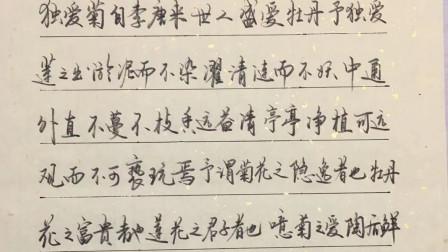 独爱菊自李唐来世人盛爱牡丹予独爱
莲之出淤泥而不染濯清涟而不妖中通
外直不蔓不枝香远益清亭亭净植可远
观而不可亵玩焉予谓菊花之隐逸者也牡丹
花之富贵者也莲花之君子者也噫菊之爱陶后鲜